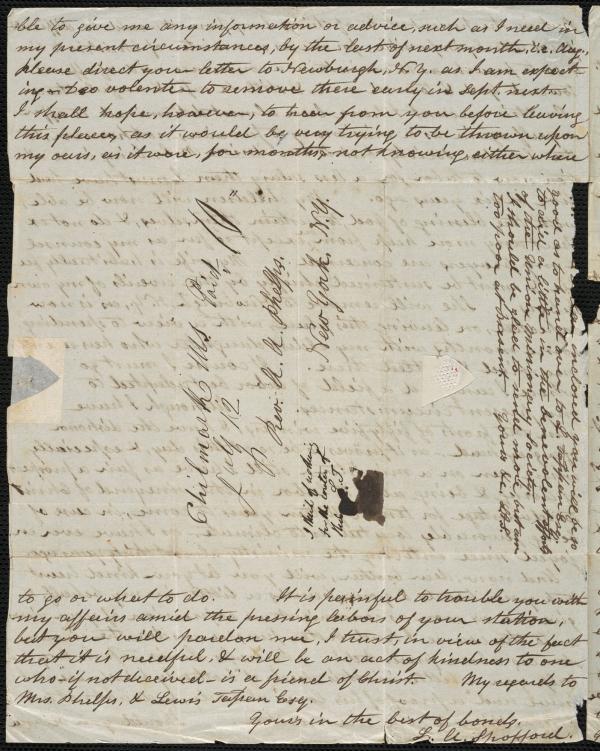 ble to give me any information or advice, such as I need in
my present circumstances, by the last of next month, i.e. Aug.,
please direct your letter to Newburgh, N.Y. as I am expect-
ing - Deo volente - to remove there early in Sept. next.
I shall hope, however, to hear from you before leaving
this place, as it would be very trying to be thrown upon
my oars, as it were, for months, not knowing either where
inclosed you will be so
good as to hand over to L. Tappan Esq.
to aid a little in the benevolent efforts
of the Union Missionary Society.
I should be glad to send more, but am
too poor at present. Yours &c. L.A.S.
Chilmark Ms Paid 10
July 12
Rev. A. A. Phelps.
New York. N.Y.
to go or what to do. It is painful to trouble you with
my affairs amid the pressing labors of your station,
but you will pardon me, I trust, in view of the fact
that it is needful, & will be an act of kindness to one
who - if not deceived - is a friend of Christ. My regards to
Mrs. Phelps, & Lewis Tappan Esq.
Yours in the best of bonds.
L. A. Spofford.